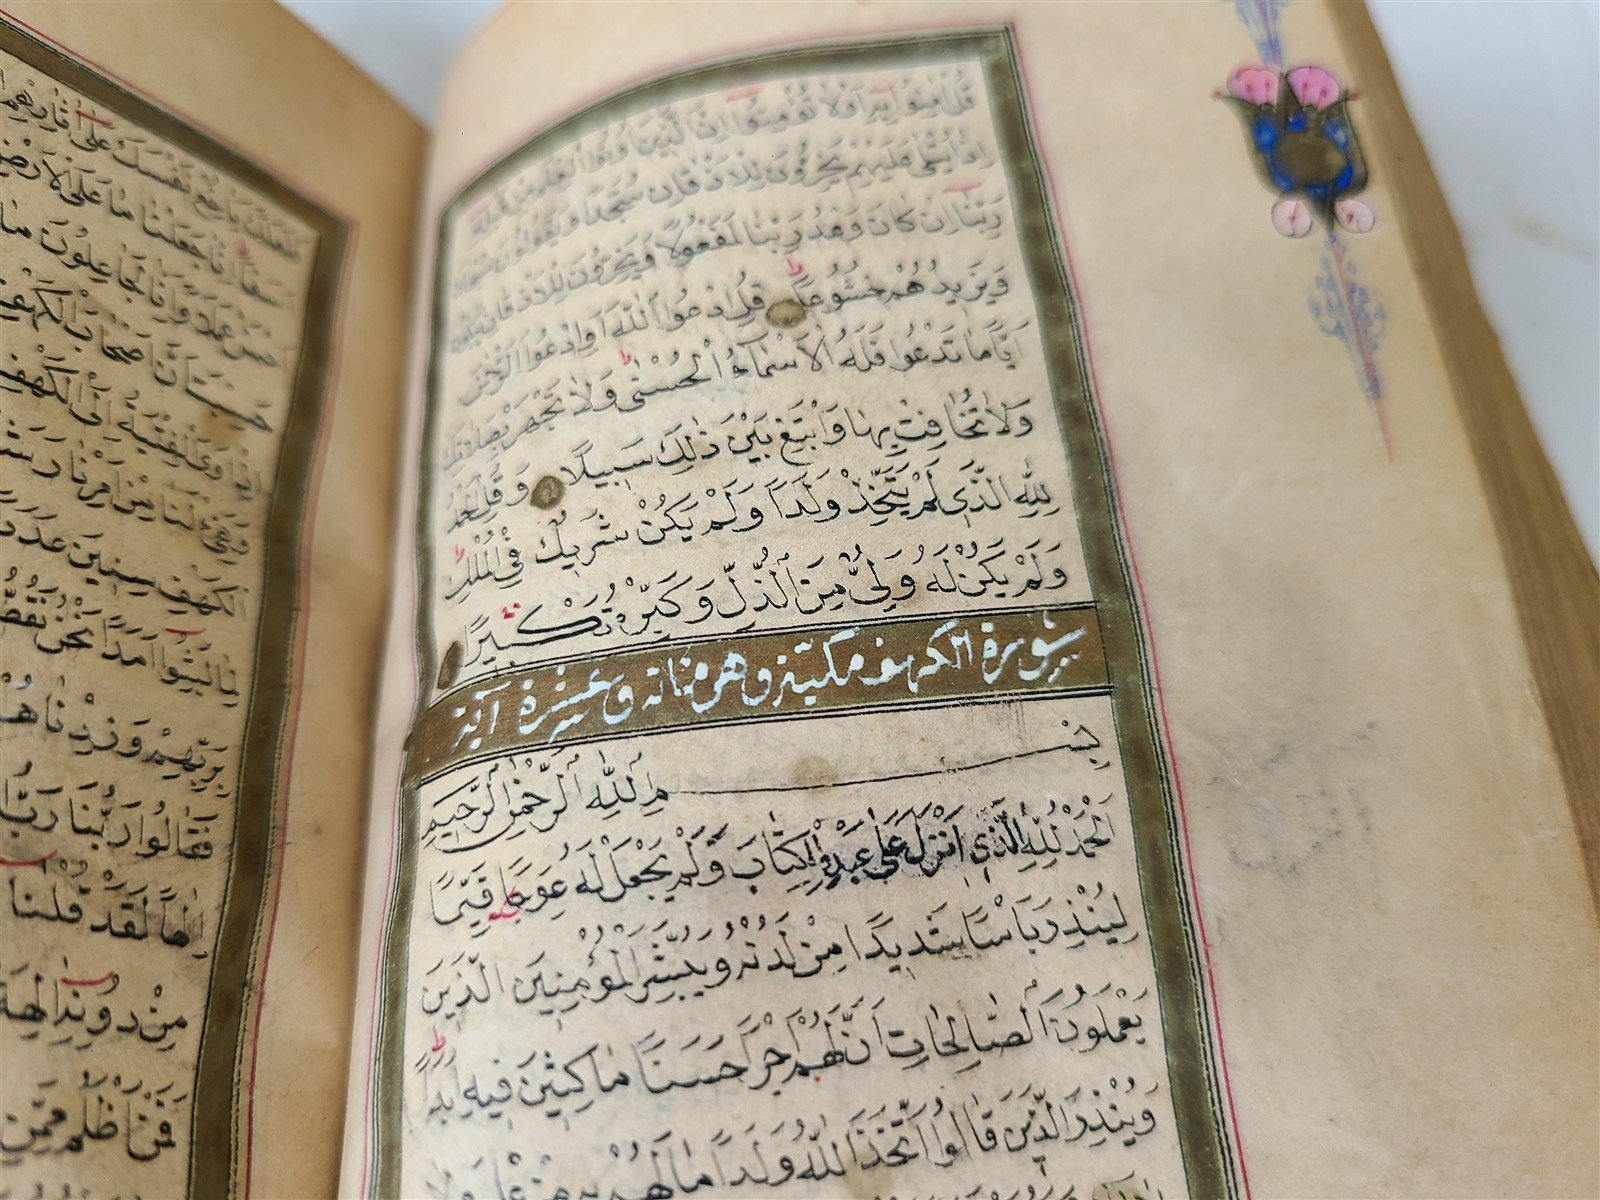 قُلْ اٰمِنُوا بِهِ اَوْ لَا تُؤْمِنُوا اِنَّ الَّذِينَ اُوتُوا الْعِلْمَ مِنْ قَبْلِهِ
اِذَا يُتْلٰى عَلَيْهِمْ يَخِرُّونَ لِلْاَذْقَانِ سُجَّدًا وَيَقُولُونَ سُبْحَانَ
رَبِّنَا اِنْ كَانَ وَعْدُ رَبِّنَا لَمَفْعُولًا وَيَخِرُّونَ لِلْاَذْقَانِ يَبْكُونَ
وَيَزِيدُهُمْ خُشُوعًا قُلِ ادْعُوا اللّٰهَ اَوِ ادْعُوا الرَّحْمٰنَ
اَيًّا مَا تَدْعُوا فَلَهُ الْاَسْمَآءُ الْحُسْنٰى وَلَا تَجْهَرْ بِصَلَاتِكَ
وَلَا تُخَافِتْ بِهَا وَابْتَغِ بَيْنَ ذٰلِكَ سَبِيلًا وَقُلِ الْحَمْدُ
لِلّٰهِ الَّذِي لَمْ يَتَّخِذْ وَلَدًا وَلَمْ يَكُنْ شَرِيكٌ فِي الْمُلْكِ
وَلَمْ يَكُنْ لَهُ وَلِيٌّ مِنَ الذُّلِّ وَكَبِّرْهُ تَكْبِيرًا
سورة الكهف مكية وهي مائة وعشرة آية
بِسْمِ اللّٰهِ الرَّحْمٰنِ الرَّحِيمِ
اَلْحَمْدُ لِلّٰهِ الَّذِي اَنْزَلَ عَلٰى عَبْدِهِ الْكِتَابَ وَلَمْ يَجْعَلْ لَهُ عِوَجًا قَيِّمًا
لِيُنْذِرَ بَاْسًا شَدِيدًا مِنْ لَدُنْهُ وَيُبَشِّرَ الْمُؤْمِنِينَ الَّذِينَ
يَعْمَلُونَ الصَّالِحَاتِ اَنَّ لَهُمْ اَجْرًا حَسَنًا مَاكِثِينَ فِيهِ اَبَدًا
وَيُنْذِرَ الَّذِينَ قَالُوا اتَّخَذَ اللّٰهُ وَلَدًا مَا لَهُمْ بِهِ مِنْ عِلْمٍ وَلَا
فَلَعَلَّكَ بَاخِعٌ نَفْسَكَ عَلٰى اٰثَارِهِمْ
اَسَفًا اِنَّا جَعَلْنَا مَا عَلَى الْاَرْضِ
اَحْسَنُ عَمَلًا وَاِنَّا لَجَاعِلُونَ مَا
حَسِبْتَ اَنَّ اَصْحَابَ الْكَهْفِ
اِذْ اَوَى الْفِتْيَةُ اِلَى الْكَهْفِ
وَهَيِّئْ لَنَا مِنْ اَمْرِنَا رَشَ
الْكَهْفِ سِنِينَ عَدَدًا
لَبِثُوا اَمَدًا نَحْنُ نَقُصُّ
بِرَبِّهِمْ وَزِدْنَاهُمْ
فَقَالُوا رَبُّنَا رَبُّ
اِلٰهًا لَقَدْ قُلْنَا
مِنْ دُونِهِ اٰلِهَةً
فَمَنْ اَظْلَمُ مِمَّنِ